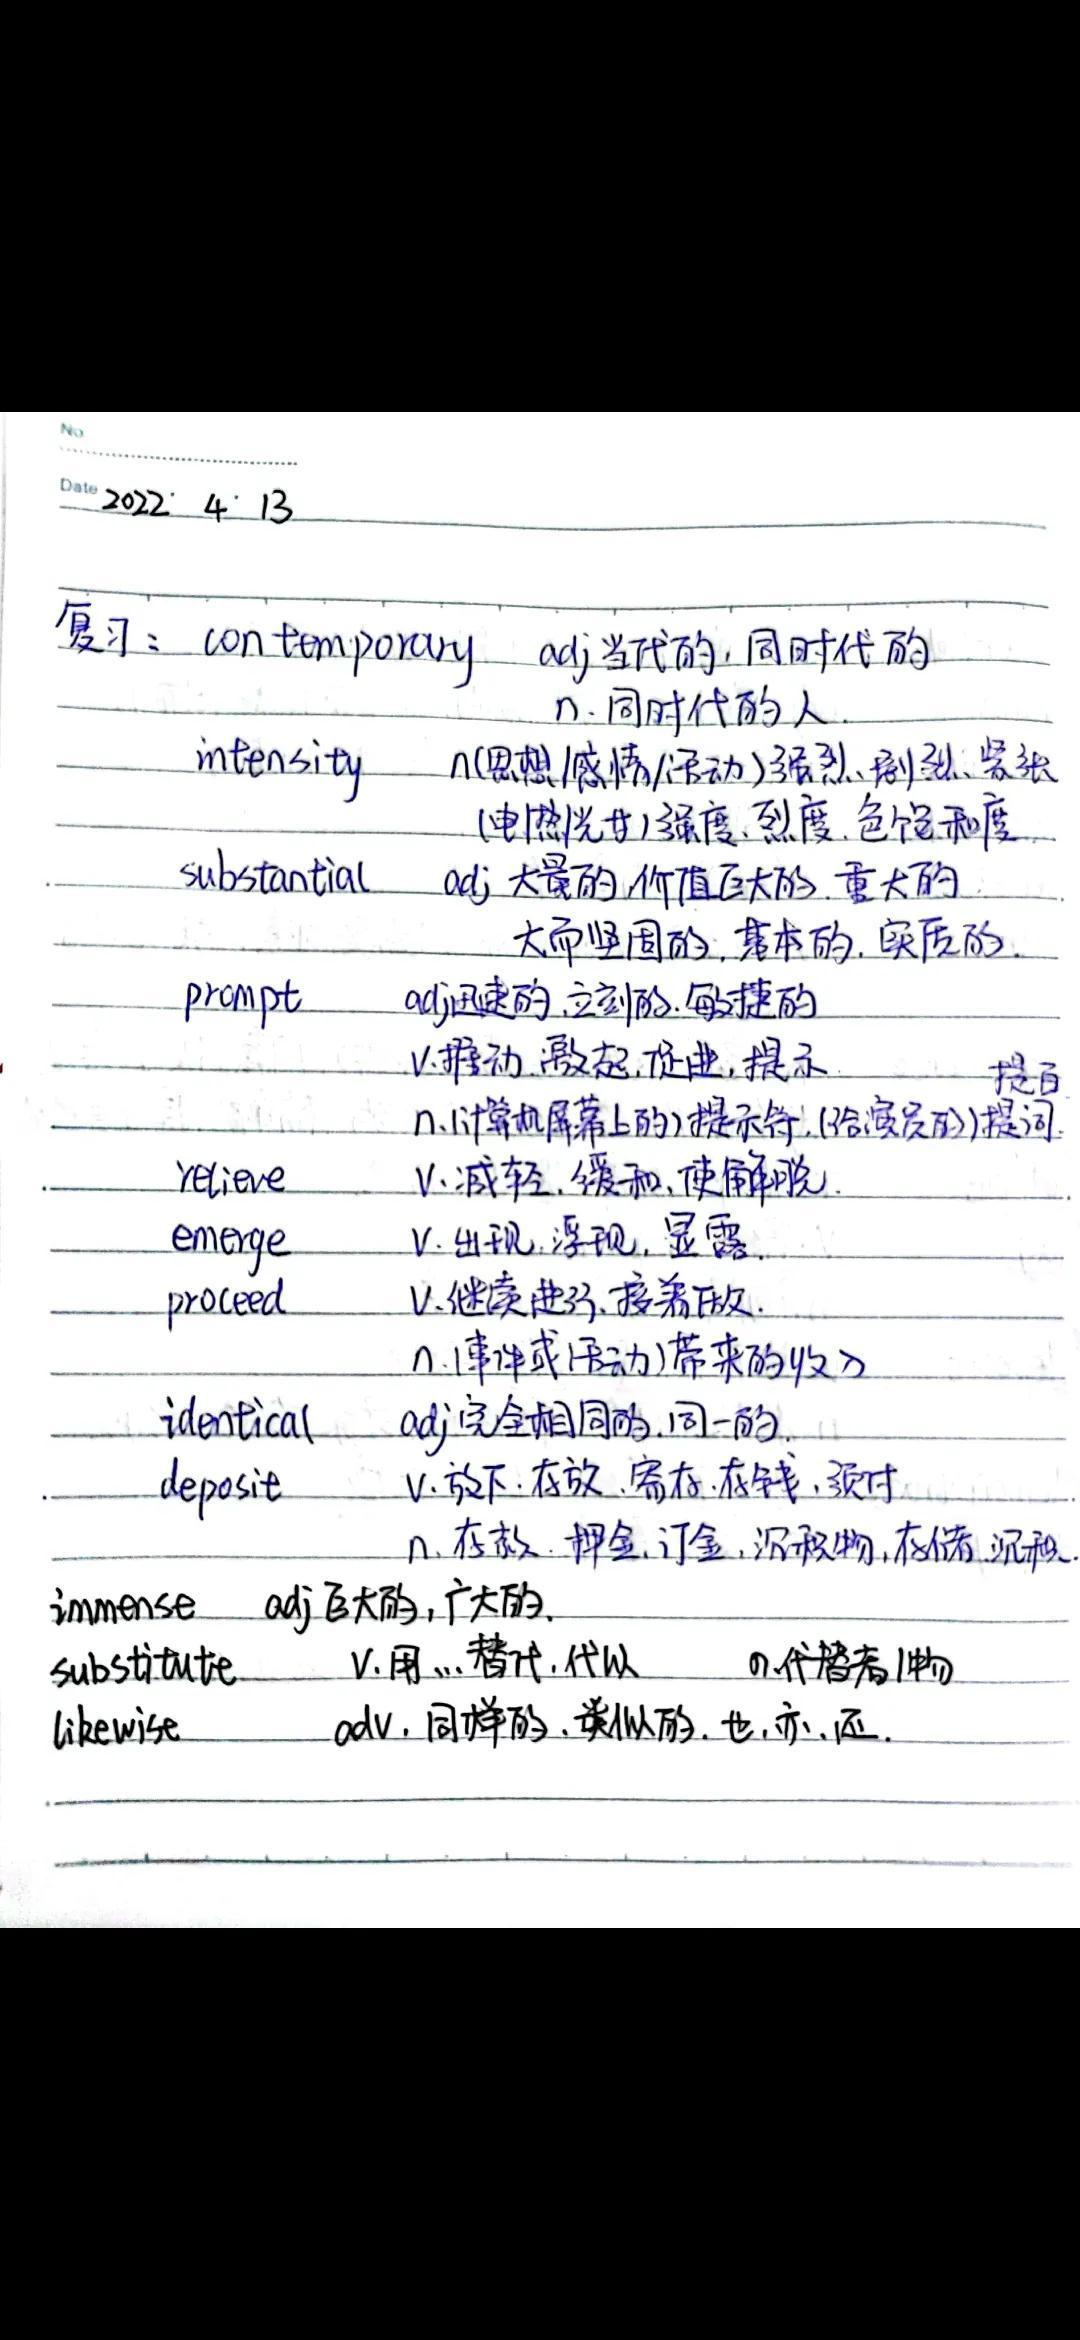 No
Date 2022. 4. 13
复习: contemporary adj 当代的, 同时代的
n. 同时代的人.
intensity n(思想/感情/活动)强烈、剧烈、紧张
(电/热/光/  )强度、烈度、色饱和度
substantial adj 大量的,价值巨大的、重大的.
大而坚固的, 基本的, 实质的.
prompt adj迅速的,立刻的、敏捷的
v.推动,激起,促进,提示
提白
n.(计算机屏幕上的)提示符,(给演员的)提词.
relieve v.减轻、缓和、使解脱.
emerge v.出现,浮现,显露.
proceed v.继续进行、接着做.
n.(事件或活动)带来的收入
identical adj完全相同的,同一的.
deposit v.放下.存放、寄存.存钱、预付
n.存款、押金,订金,沉积物,存储,沉积.
immense adj 巨大的,广大的.
substitute v.用...替代,代以 n.代替者/物
likewise adv.同样的、类似的.也,亦、还.